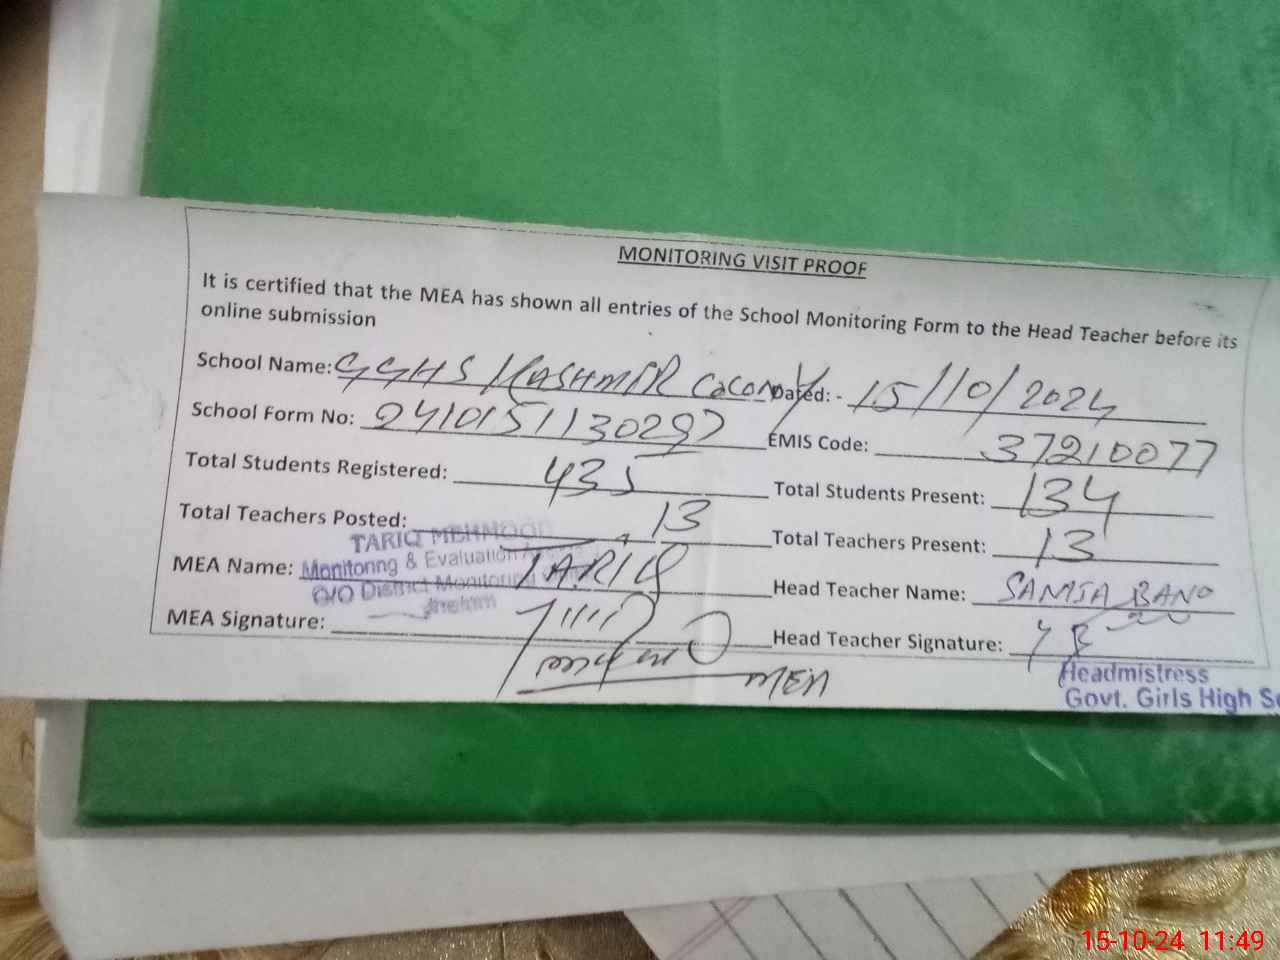 MONITORING VISIT PROOF
It is certified that the MEA has shown all entries of the School Monitoring Form to the Head Teacher before its
online submission
School Name: GGHS KASHMIR COLONY Dated: - 15/10/2024
School Form No: 2410151130297 EMIS Code: 37210077
Total Students Registered: 435 Total Students Present: 134
Total Teachers Posted: 13 Total Teachers Present: 13
TARIQ MEHMOOD
Monitoring & Evaluation
O/O District Monitoring
Jhelum
MEA Name: TARIQ Head Teacher Name: SAMIA BANO
MEA Signature: Head Teacher Signature:
MEA
Headmistress
Govt. Girls High Sc
15-10-24 11:49